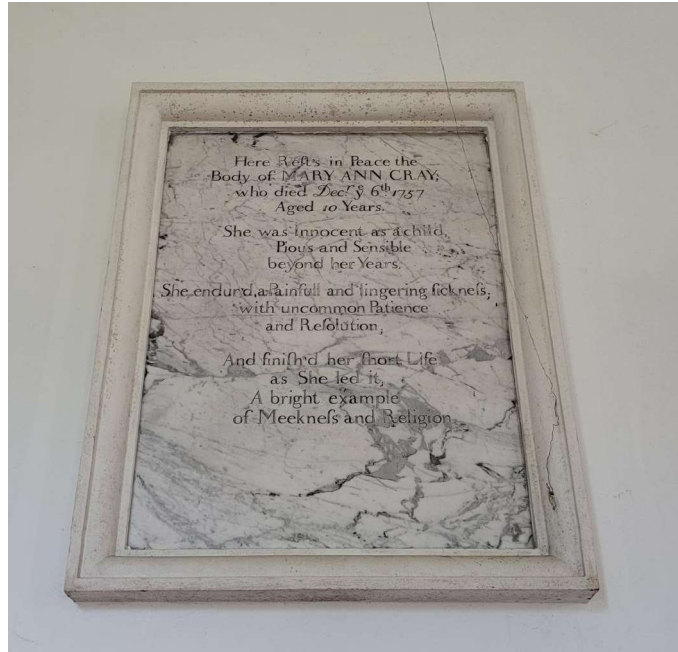 Here Reſt's in Peace the
Body of MARY ANN CRAY;
who died Decr. ye 6th 1757
Aged 10 Years.
She was Innocent as a child,
Pious and Sensible
beyond her Years.
She endur'd, a Painfull and lingering ſickneſs,
with uncommon Patience
and Reſolution,
And finiſh'd her ſhort Life
as She led it,
A bright example
of Meekneſs and Religion